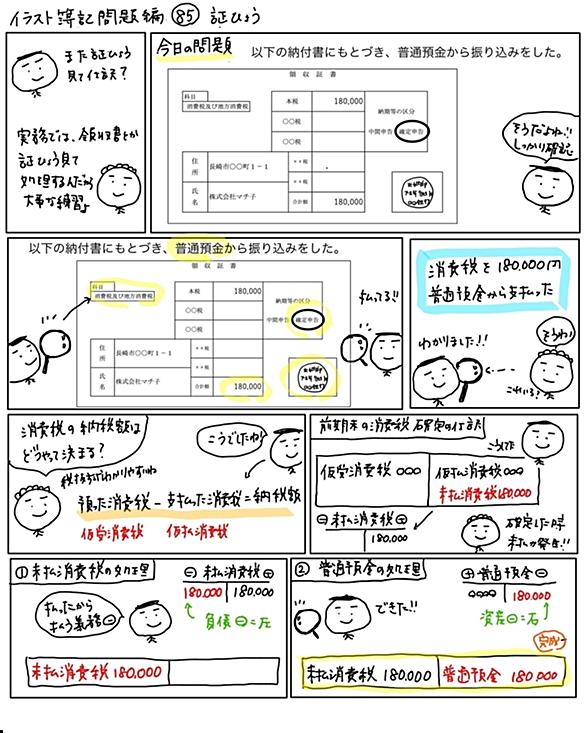 イラスト簿記問題編 85 証ひょう
また証ひょう
見て仕訳?
実務では、領収書とか
証ひょう見て
処理するんだから
大事な練習よ
今日の問題
以下の納付書にもとづき、普通預金から振り込みをした。
領収証書
科目
消費税及び地方消費税
本税
180,000
納期等の区分
〇〇税
中間申告
確定申告
〇〇税
住所
長崎市〇〇町1-1
**税
**税
氏名
株式会社マチ子
合計額
180,000
そうだよね!!
しっかり確認
以下の納付書にもとづき、普通預金から振り込みをした。
領収証書
科目
消費税及び地方消費税
本税
180,000
納期等の区分
〇〇税
中間申告
確定申告
〇〇税
住所
長崎市〇〇町1-1
**税
**税
氏名
株式会社マチ子
合計額
180,000
払ってる!!
消費税を180,000円
普通預金から支払った
わかりました!!
そうね!
消費税の納税額は
どうやって決まる?
税抜方式がわかりやすいね
こうでしたね!
預った消費税-支払った消費税=納税額
仮受消費税
仮払消費税
前期末の消費税確定の仕訳
こうでした
仮受消費税 〇〇〇
仮払消費税 〇〇〇
未払消費税180,000
⊖ 未払消費税 ⊕
180,000
確定した時
未払が発生!!
① 未払消費税の処理
払ったから
払う義務⊖
⊖ 未払消費税 ⊕
180,000
180,000
負債⊖=左
未払消費税 180,000
② 普通預金の処理
できた!!
⊕ 普通預金 ⊖
〇〇〇〇
180,000
資産⊖=右
完成
未払消費税 180,000
普通預金 180,000